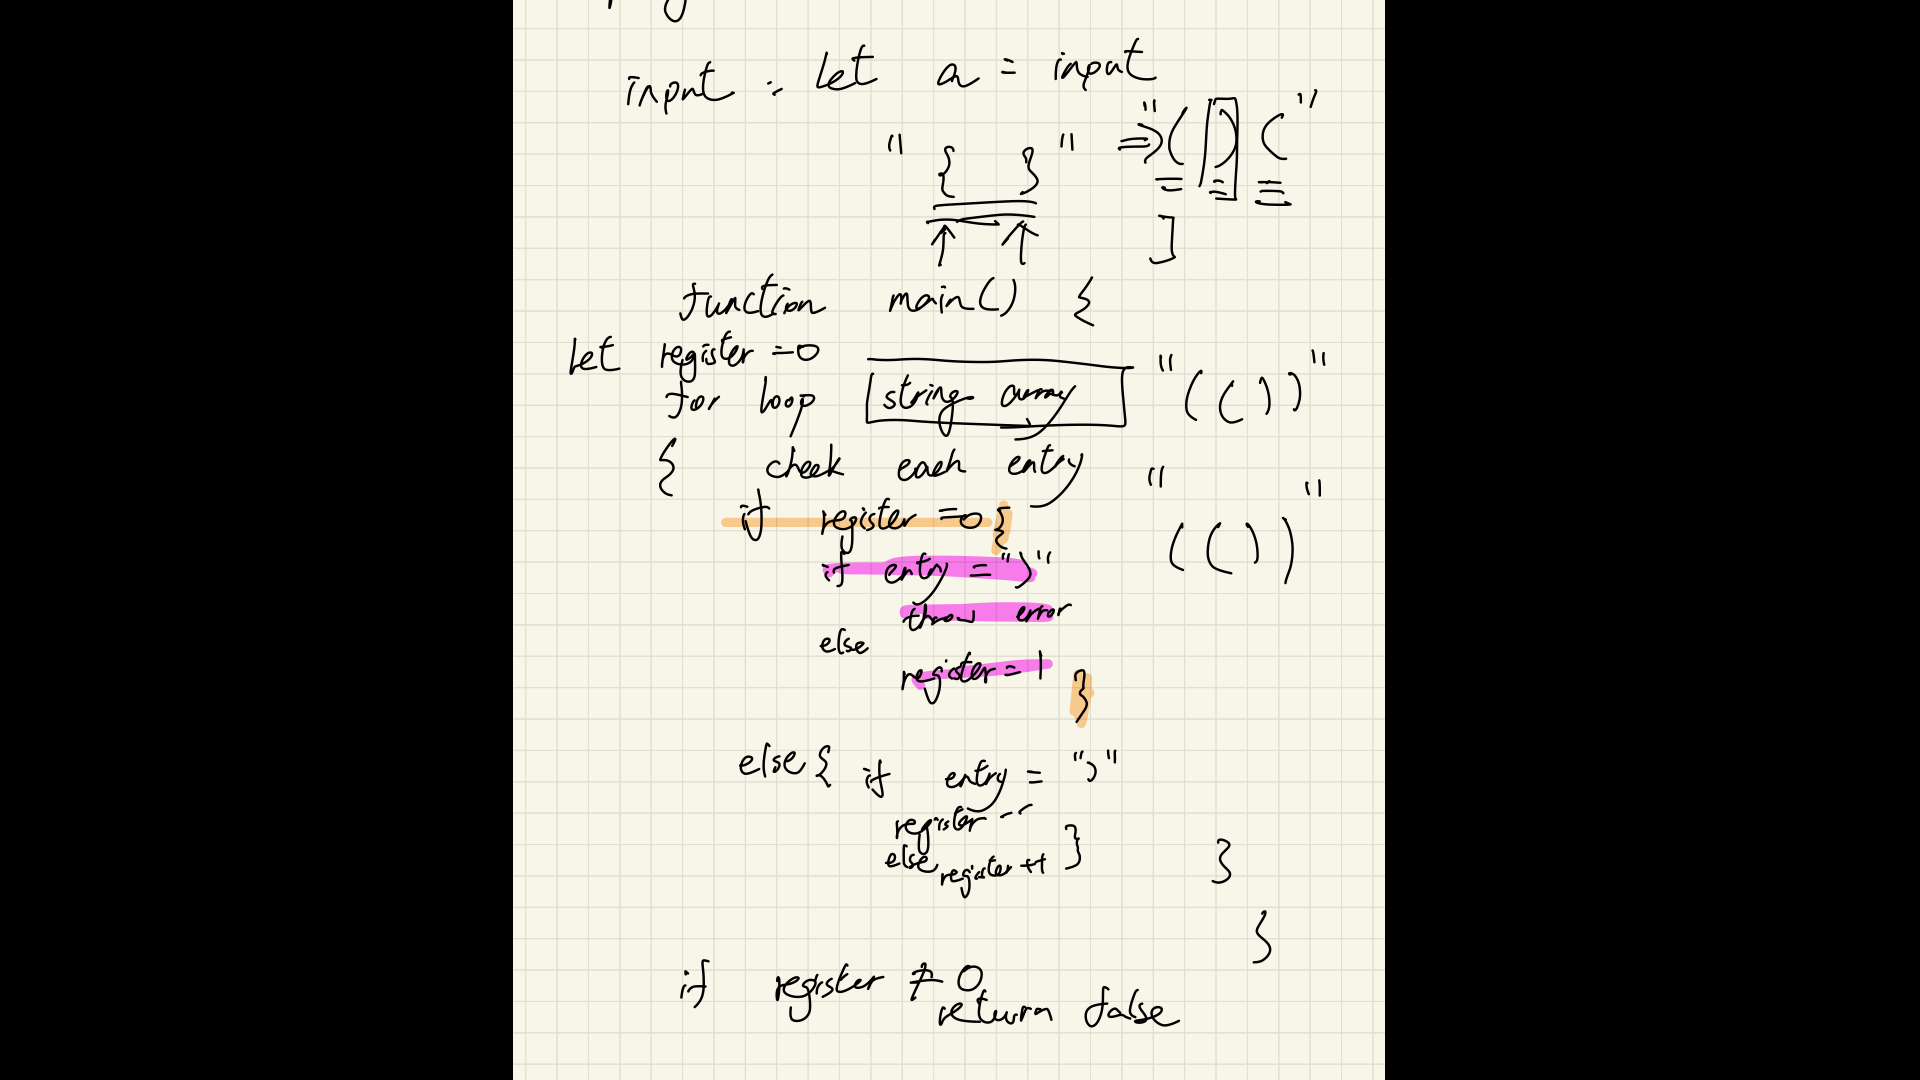 input : let a = input
"{ }" => "( ) ("
]
function main() {
let register =0
for loop string array "(())"
{ check each entry
"(())"
if register =0 {
if entry =")"
throw error
else
register = 1
}
else { if entry = ")"
register --
else register ++ }
}
}
if register ≠ 0
return false